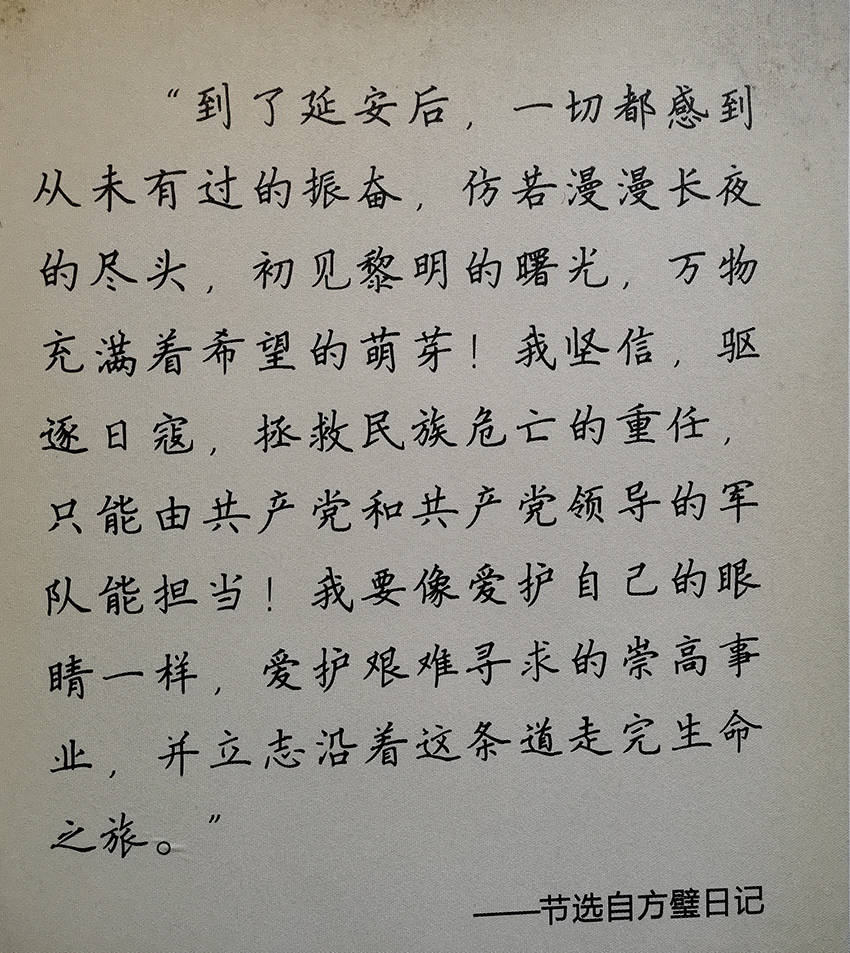 “到了延安后，一切都感到
从未有过的振奋，仿若漫漫长夜
的尽头，初见黎明的曙光，万物
充满着希望的萌芽！我坚信，驱
逐日寇，拯救民族危亡的重任，
只能由共产党和共产党领导的军
队能担当！我要像爱护自己的眼
睛一样，爱护艰难寻求的崇高事
业，并立志沿着这条道走完生命
之旅。”
——节选自方璧日记